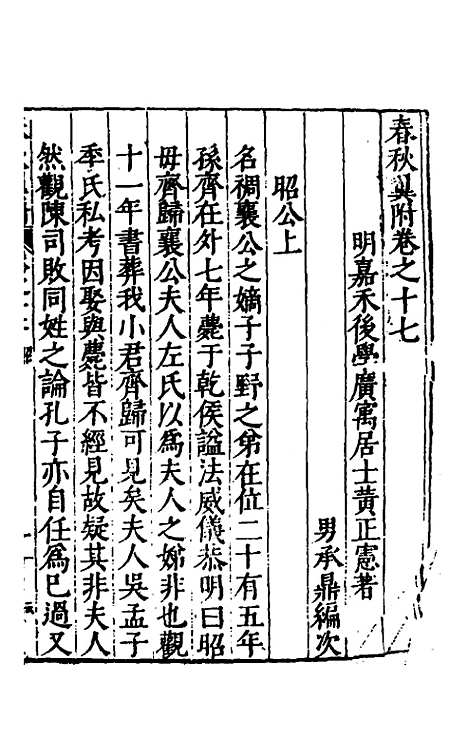 春秋翼附卷之十七
明嘉禾後學廣寓居士黃正憲著
男承鼎編次
昭公上
名裯襄公之嫡子子野之弟在位二十有五年
孫齊在外七年薨于乾侯謚法威儀恭明曰昭
毋齊歸襄公夫人左氏以為夫人之娣非也觀
十一年書葬我小君齊歸可見矣夫人吳孟子
季氏私考因娶與薨皆不經見故疑其非夫人
然觀陳司敗同姓之論孔子亦自任為已過又